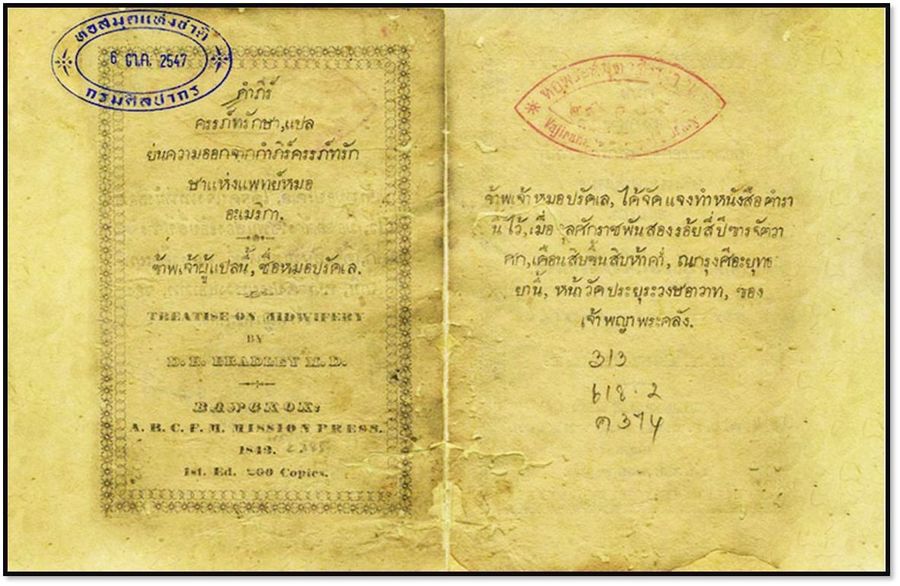 หอสมุดแห่งชาติ
6 ต.ค. 2547
กรมศิลปากร
คำภิร์
ครรภ์ทรักษา, แปล
ย่นความออกจากคำภิร์ครรภ์ทรัก
ษาแห่งแพทย์หมอ
อะเมริกา.
ข้าพเจ้าผู้แปลนี้, ชื่อหมอปรัดเล.
TREATISE ON MIDWIFERY
BY
D. B. BRADLEY M. D.
BANGKOK:
A. B. C. F. M. MISSION PRESS.
1842.
1st. Ed. 200 Copies.
ข้าพเจ้าหมอปรัดเล, ได้จัดแจงทำหนังสือตำรา
นี้ไว้, เมื่อ จุลศักราชพันสองร้อยสี่ปีขารจัตวา
ศก, เดือนสิบขึ้นสิบห้าค่ำ, ณกรุงศีอะยุทธ
ยานี้, หน้าวัดประยุระวงษอาวาท, ของ
เจ้าพญาพระคลัง.
313
618.2
ค374